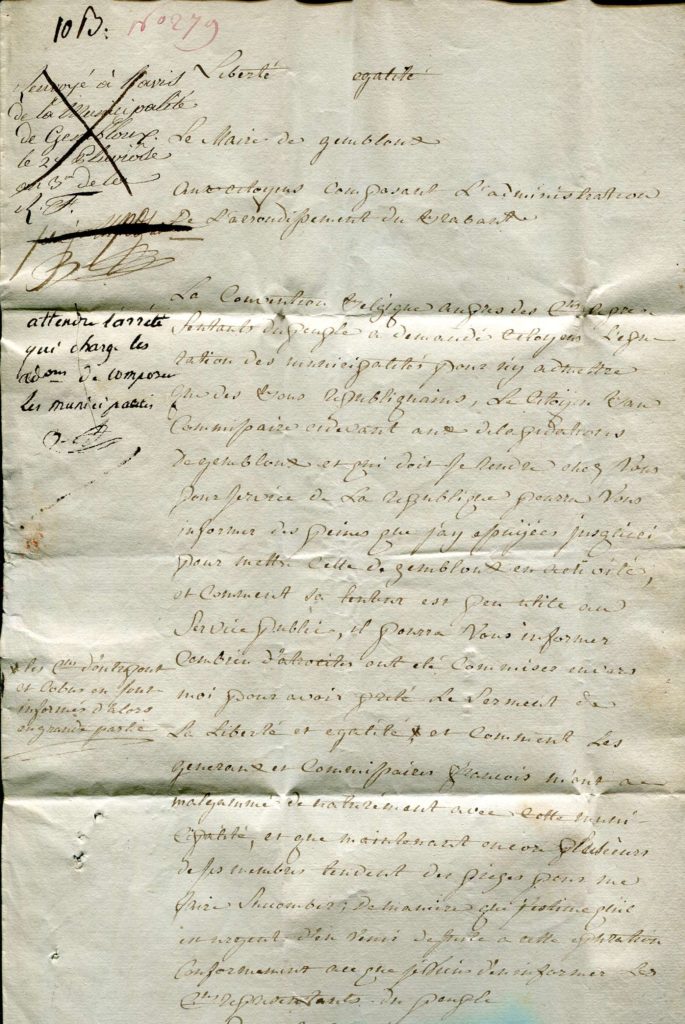 10 B. N° 279
Liberté egalité
renvoyé à l'avis
de la Municipalité
de Gembloux.
le 25 Pluviose
an 3e de la
R. F.
Le Maire de gembloux
Aux citoyens composant L'administration
De L'arondissement du brabant
attendre l'arrêté
qui charge les
adons de composer
les municipalités
La Convention belgique aupres des Cens repre-
sentants du peuple a demandé citoyens L'epu-
ration des municipalités pour n'y admettre
que des vrais republiquains, Le Citoyen
Commissaire cidevant aux
De gembloux et qui doit se rendre chez Vous
pour service de La republique pourra Vous
informer des peines que j'ay essuijées jusqu'ici
pour mettre Cette de gembloux en activité,
et Comment sa lenteur est peu utile au
Service public, il pourra Vous informer
Combien d'atrocites ont eté Commises envers
moi pour avoir preté Le Serment de
La Liberté et egalité * et Comment Les
generaux et Commissaires francois m'ont a
malgammé denaturément avec Cette muni-
cipalité, et que maintenant encore plusieurs
de ses membres tendent des pieges pour me
faire Succomber; De maniere que j'estime qu'il
est urgent d'en venir de suite a cette epuration
Conformement a ce que je viens d'en informer Les
Cens representants du peuple
* les Cens d'outrepont
et Cobus en sont
informés d'alors
en grande partie